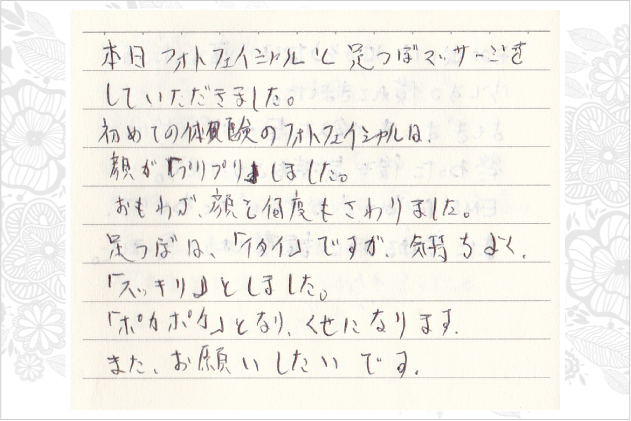 本日 フォトフェイシャルと足つぼマッサージを
していただきました。
初めての体験のフォトフェイシャルは、
顔が「プリプリ」しました。
おもわず、顔を何度もさわりました。
足つぼは、「イタイ」ですが、気持ちよく、
「スッキリ」としました。
「ポカポカ」となり、くせになります。
また、お願いしたいです。